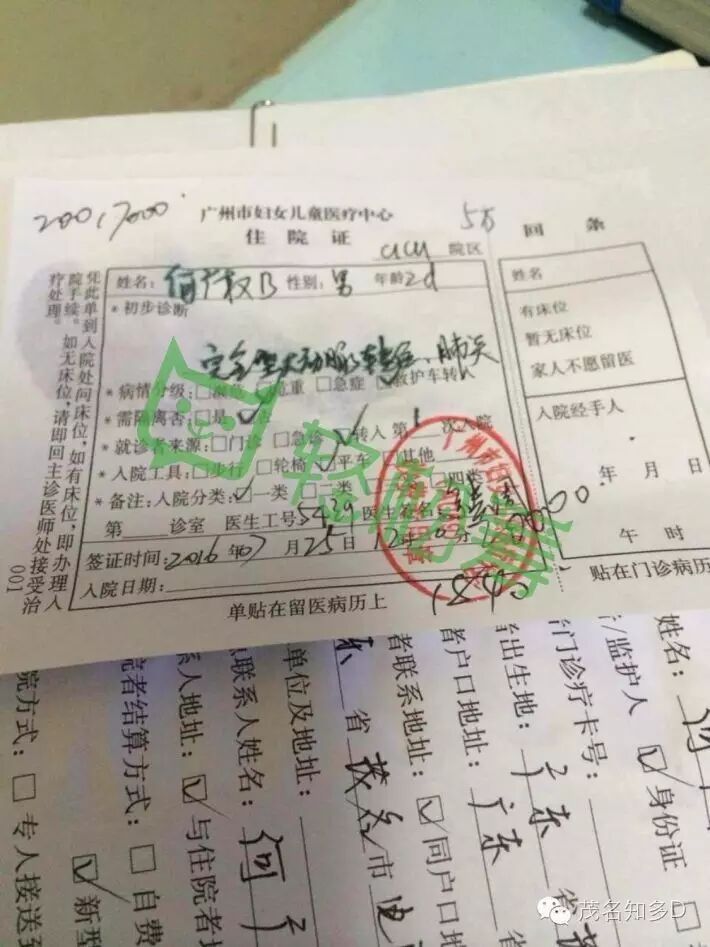 2001,7000
广州市妇女儿童医疗中心
5万
回条
住院证
CICU 院区
凭此单到入院处问床位,如有床位,即办理入
院手续。如无床位,请即回主诊医师处接受治
疗处理。
001
姓名: 性别:男 年龄2d
*初步诊断
完全型大动脉转位、肺炎
*病情分级:□濒危 □危重 □急症 ☑救护车转入
*需隔离否:□是 ☑否
*就诊者来源:□门诊 □急诊 ☑转入 第1次入院
*入院工具:□步行 □轮椅 ☑平车 □其他
*备注:入院分类:☑一类 □二类 □四类
第 诊室 医生工号5429 医生签名:
签证时间:2016年07月25日12时
入院日期:
单贴在留医病历上
1840
姓名
有床位
暂无床位
家人不愿留医
入院经手人
年 月 日
午 时
贴在门诊病历
广州市妇
轻松筹
姓名:何
☑身份证
/监护人
门诊疗卡号:
出生地:广东省
者户口地址:广东
者联系地址:☑同户口地
单位及地址:
东省茂名市电
联系人姓名:何
系人地址:☑与住院者地
院者结算方式:□自费
☑新型
院方式:□专人接送到
茂名知多D